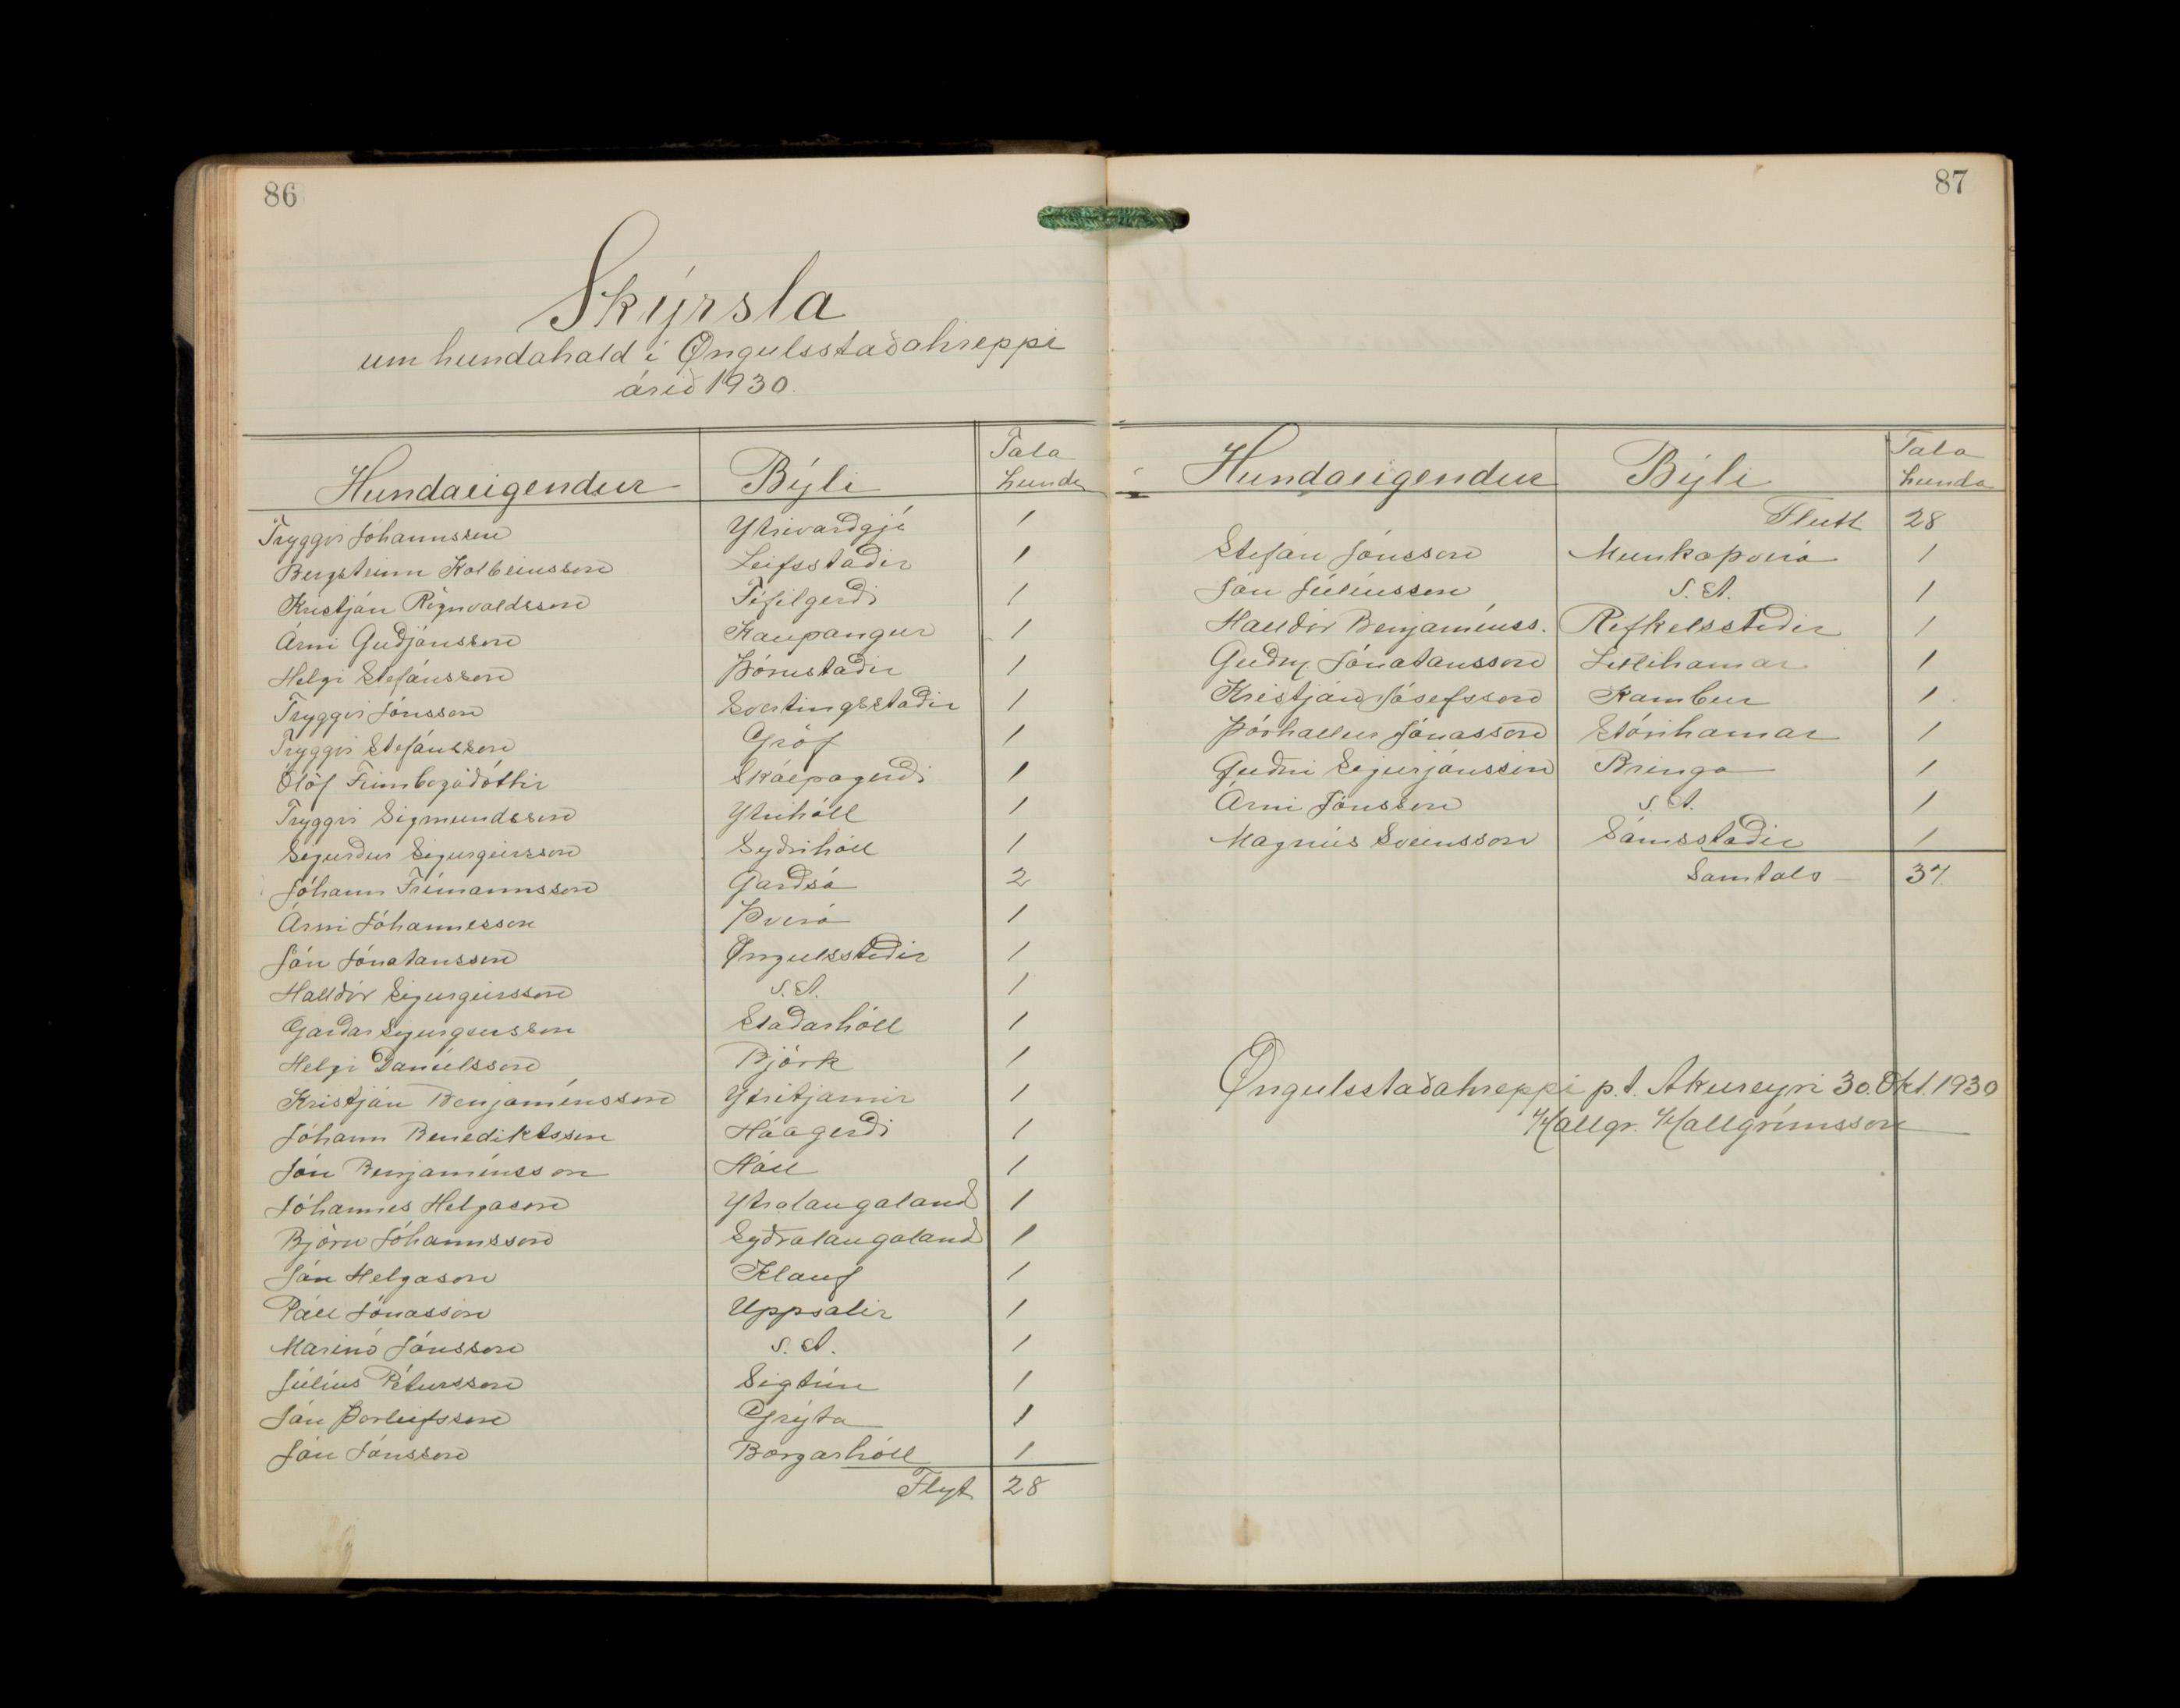 86
Skýrsla
um hundahald í Øngulsstaðahreppi
árið 1930.
Hundaeigendur Býli Tala hunda
Tryggvi Jóhannsson Ytrivarðgjá 1
Bergsteinn Kolbeinsson Leifsstaðir 1
Kristján Rögnvaldsson Fífilgerði 1
Árni Guðjónsson Kaupangur 1
Helgi Stefánsson Þórustaðir 1
Tryggvi Jónsson Svertingsstaðir 1
Tryggvi Stefánsson Gröf 1
Ólöf Finnbogadóttir Skálpagerði 1
Tryggvi Sigmundsson Ytrihóll 1
Sigurður Sigurgeirsson Syðrihóll 1
Jóhann Frímannsson Garðsá 2
Árni Jóhannesson Þverá 1
Jón Jónatansson Øngulsstaðir 1
Halldór Sigurgeirsson s.st. 1
Garðar Sigurgeirsson Staðarhóll 1
Helgi Daníelsson Björk 1
Kristján Benjamínsson Ytritjarnir 1
Jóhann Benediktsson Háagerði 1
Jón Benjamínsson Hóll 1
Jóhannes Helgason Ytralaugaland 1
Björn Jóhannsson Syðralaugaland 1
Jón Helgason Klauf 1
Páll Jónasson Uppsalir 1
Marinó Jónsson s.st. 1
Júlíus Pétursson Sigtún 1
Jón Þorleifsson Grýta 1
Jón Jónsson Borgarhóll 1
Flyt 28
87
Hundaeigendur Býli Tala hunda
Flutt 28
Stefán Jónsson Munkaþverá 1
Jón Júlíusson s.st. 1
Halldór Benjamínss. Rifkelsstaðir 1
Guðm. Jónatansson Litlihamar 1
Kristján Jósefsson Kambur 1
Þórhallur Jónasson Stórihamar 1
Guðni Sigurjónsson Bringa 1
Árni Jónsson s.st. 1
Magnús Sveinsson Sámsstaðir 1
Samtals 37.
Øngulsstaðahreppi p.t. Akureyri 30. Okt. 1930
Hallgr. Hallgrímsson